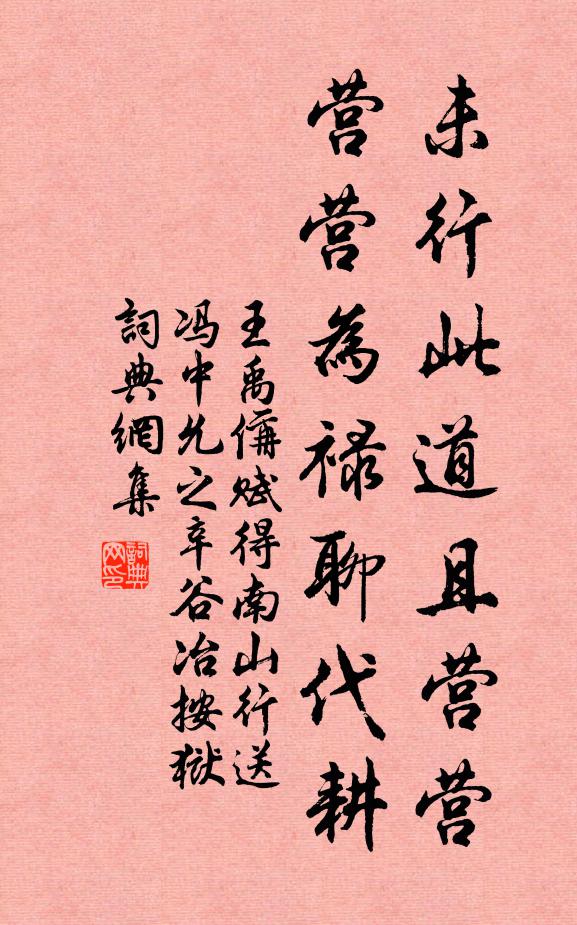 未行此道且营营
营营為禄聊代耕
王禹偁赋得南山行送
冯中允之辛谷冶按獄
詞典網集
詞典网印